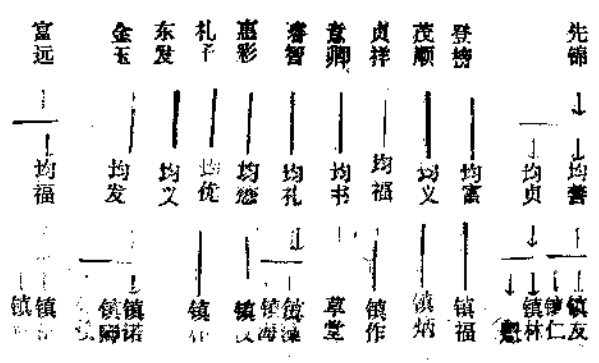 先锦
登榜
茂顺
贞祥
意卿
睿智
惠彩
礼予
东发
金玉
富远
均善
均贞
均富
均义
均福
均书
均礼
均
均优
均义
均发
均福
镇友
镇仁
镇林
镇福
镇炳
镇作
草堂
镇
镇海
镇
镇
镇诺
镇卿
镇
镇